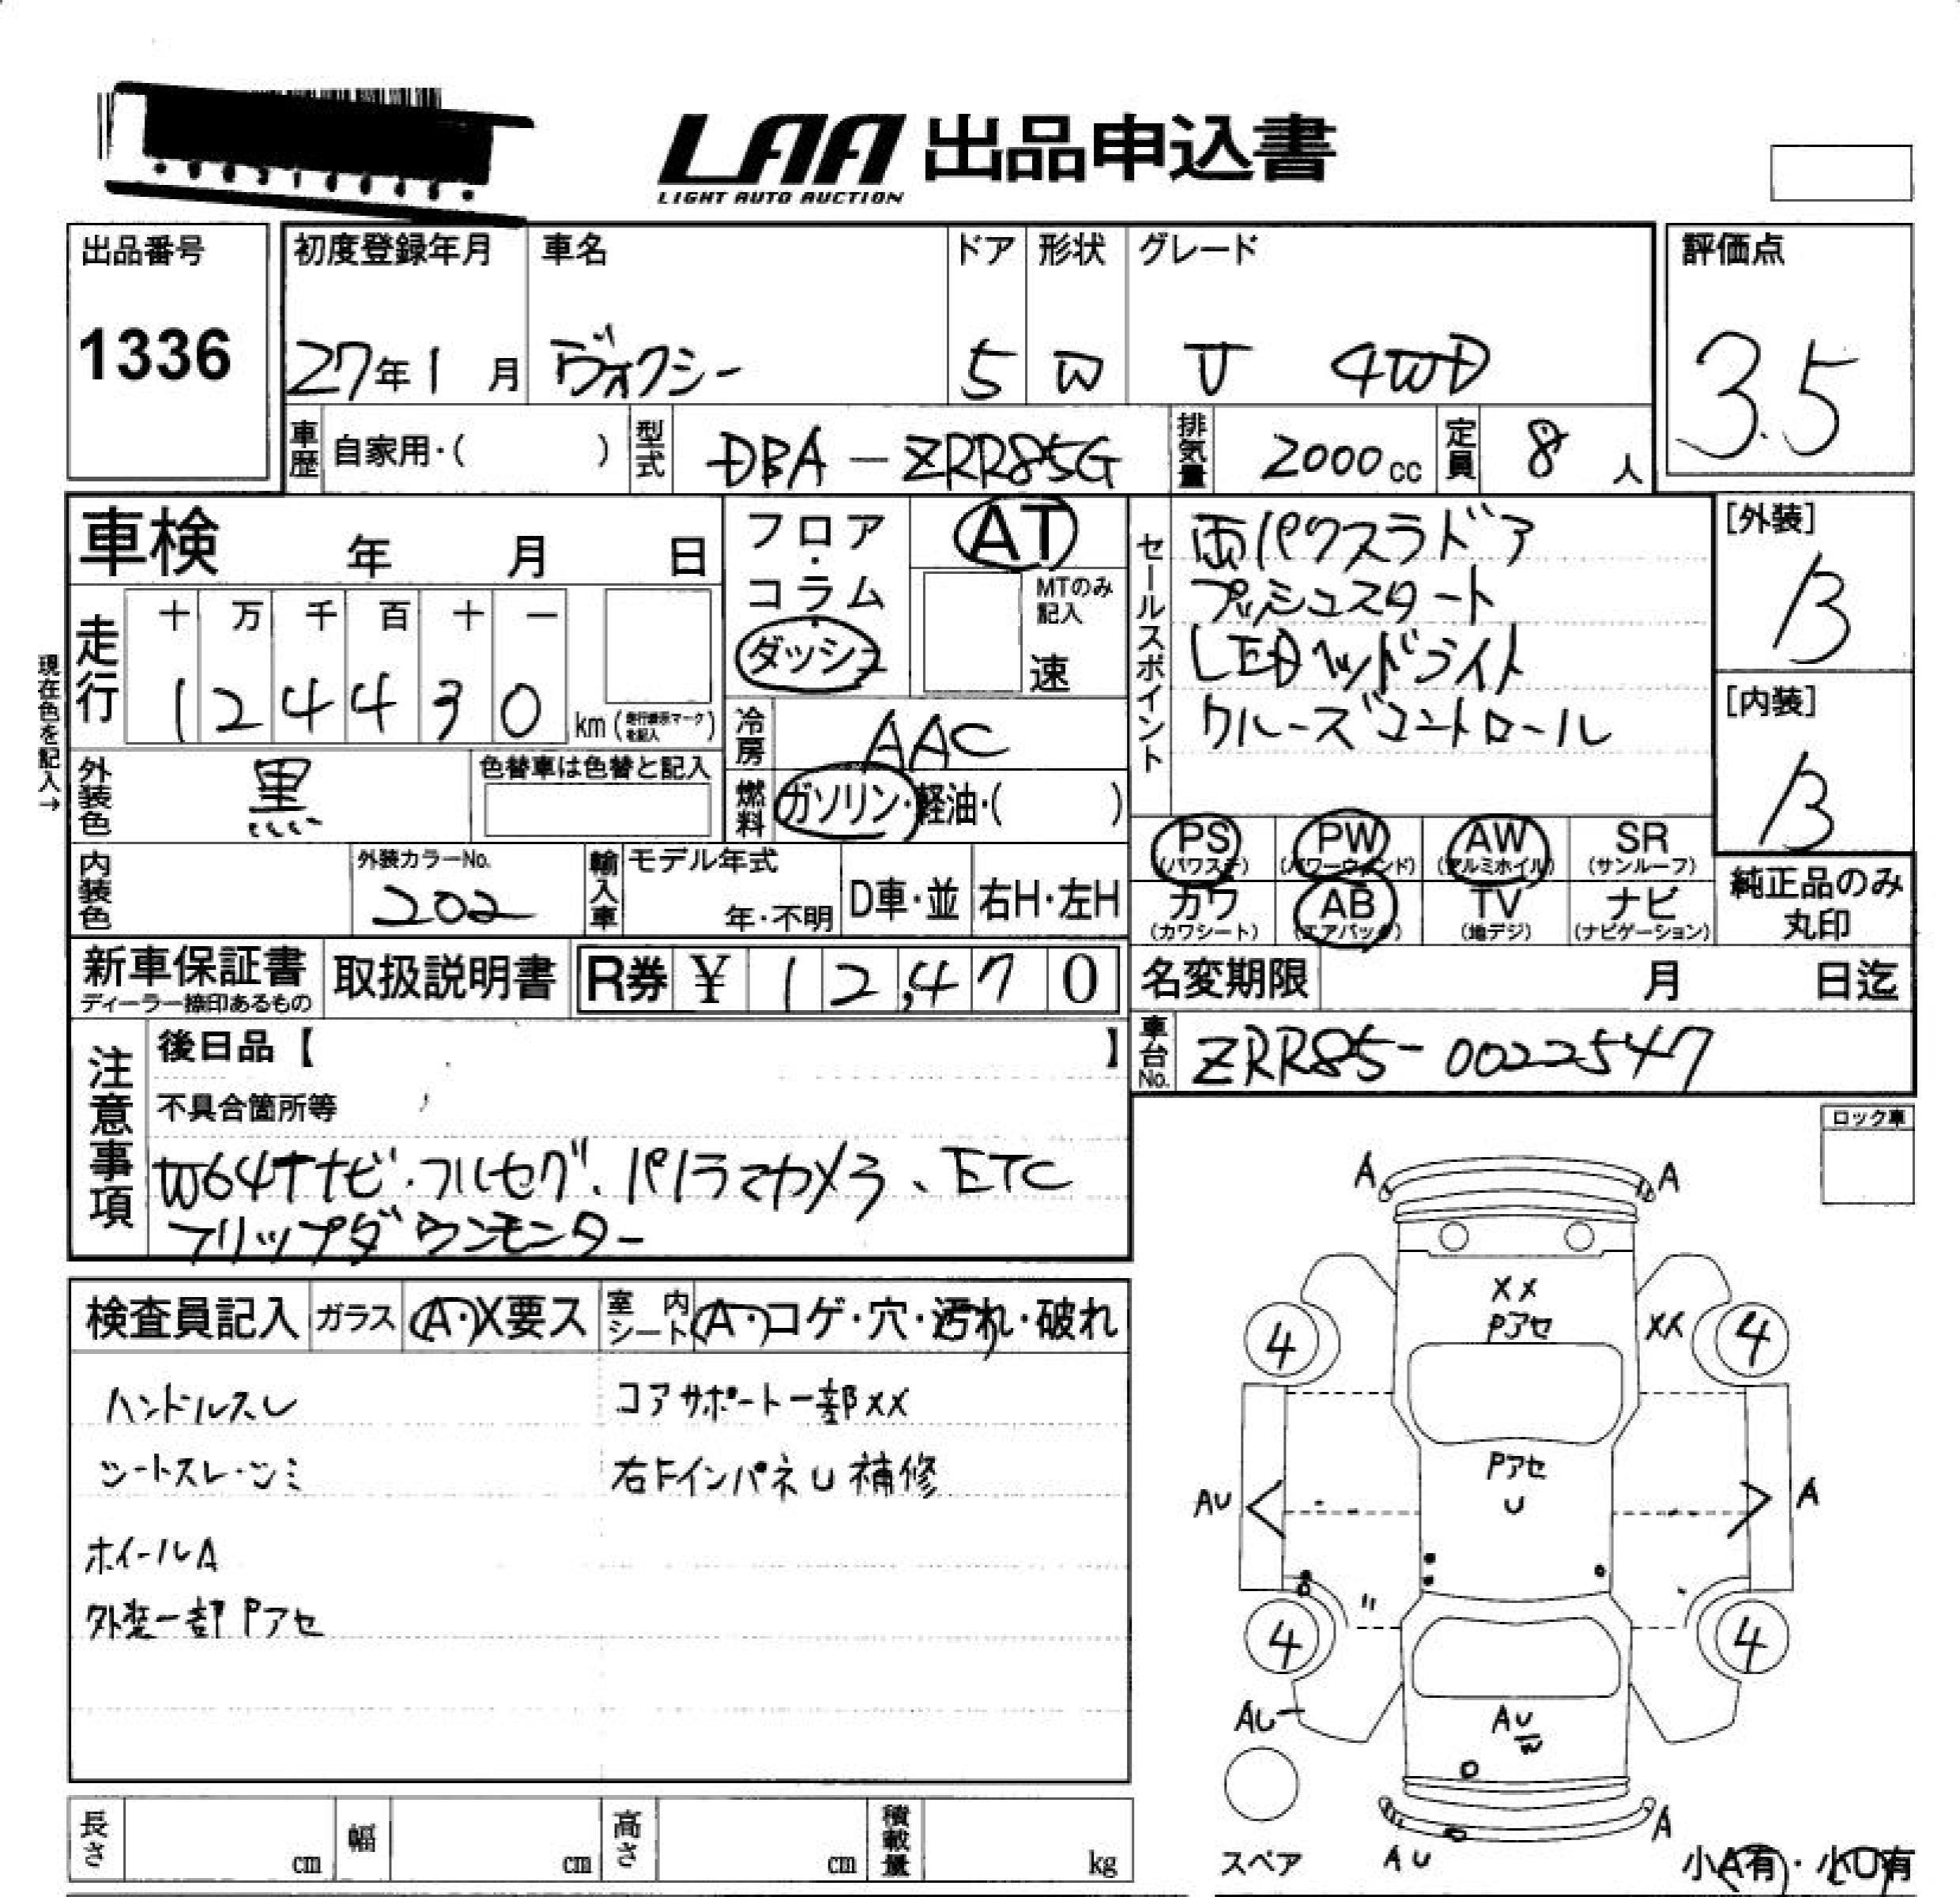 LAA 出品申込書
LIGHT AUTO AUCTION
出品番号 初度登録年月 車名 ドア 形状 グレード 評価点
1336 27年1月 ヴォクシー 5 W V 4WD 3.5
車歴 自家用・( ) 型式 DBA-ZRR85G 排気量 2000cc 定員 8人
車検 年 月 日
フロア・コラム・ダッシュ
AT
MTのみ記入
速
現在色を記入→
走行 十 万 千 百 十 一
124430 km (走行表示マークを記入)
冷房 AAC
外装色 黒 色替車は色替と記入
燃料 ガソリン・軽油・( )
セールスポイント
両パワスラドア
プッシュスタート
LEDヘッドライト
クルーズコントロール
[外装]
B
[内装]
B
PS PW AW SR
(パワステ) (パワーウィンド) (アルミホイル) (サンルーフ)
カワ AB TV ナビ
(カワシート) (エアバッグ) (地デジ) (ナビゲーション)
純正品のみ丸印
内装色 外装カラーNo. 202 輸入車 モデル年式 年・不明 D車・並 右H・左H
新車保証書 取扱説明書 R券 ¥ 12,470
ディーラー捺印あるもの
名変期限 月 日迄
車台No. ZRR85-0022547
注意事項
後日品【 】
不具合箇所等
W64Tナビ・フルセグ、パノラマカメラ、ETC
フリップダウンモニター
ロック車
検査員記入 ガラス A・X要ス 室内シート A・コゲ・穴・汚れ・破れ
ハンドルスレ コアサポート一部XX
シートスレ・シミ 右FインパネU補修
ホイールA
外装一部Pアセ
A A
XX
Pアセ XX
4 4
Pアセ
U
AU A
4 4
AU
AU
W
A
スペア AU 小A有・小U有
長さ cm 幅 cm 高さ cm 積載量 kg